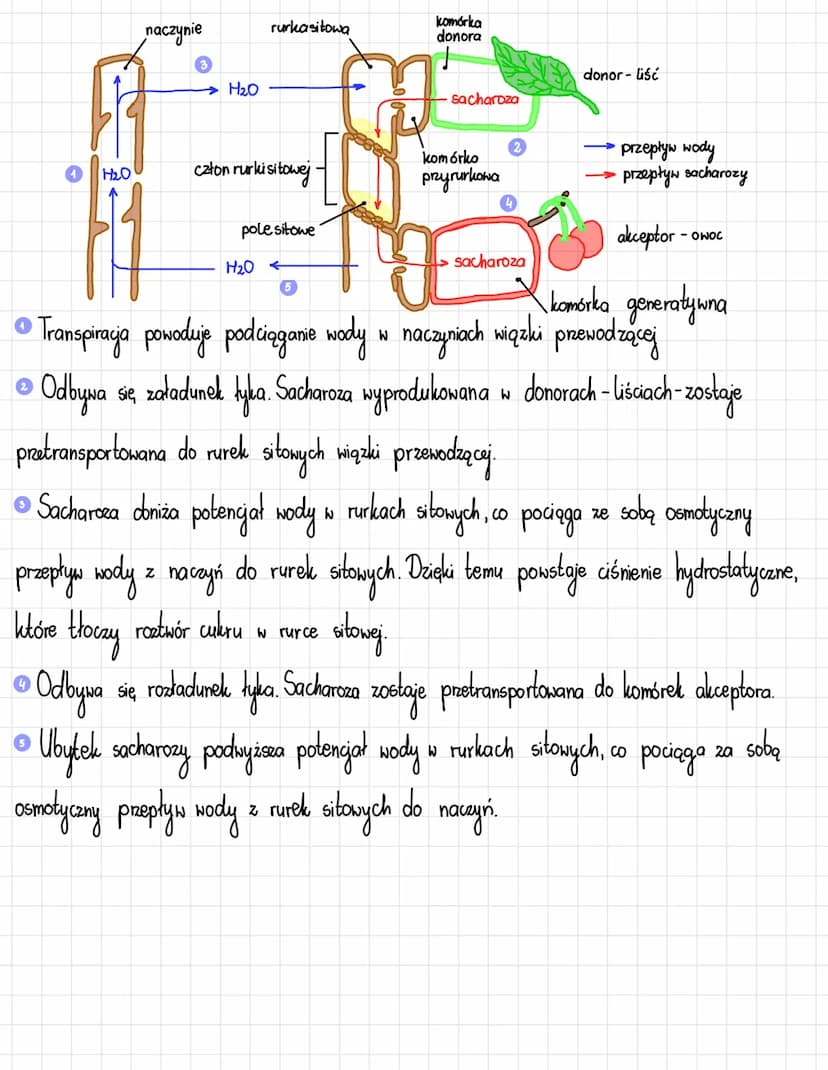 naczynie
rurka sitowa
komórka
donora
donor - liść
3
H2O
sacharoza
2
przepływ wody
przepływ sacharozy
człon rurki sitowej
komórko
przyrurkowa
1
H2O
4
pole sitowe
akceptor - owoc
H2O
sacharoza
5
komórka generatywna
1 Transpiracja powoduje podciąganie wody w naczyniach wiązki przewodzącej
2 Odbywa się załadunek łyka. Sacharoza wyprodukowana w donorach - liściach - zostaje
przetransportowana do rurek sitowych wiązki przewodzącej.
3 Sacharoza obniża potencjał wody w rurkach sitowych, co pociąga ze sobą osmotyczny
przepływ wody z naczyń do rurek sitowych. Dzięki temu powstaje ciśnienie hydrostatyczne,
które tłoczy roztwór cukru w rurce sitowej.
4 Odbywa się rozładunek łyka. Sacharoza zostaje przetransportowana do komórek akceptora.
5 Ubytek sacharozy podwyższa potencjał wody w rurkach sitowych, co pociąga za sobą
osmotyczny przepływ wody z rurek sitowych do naczyń.